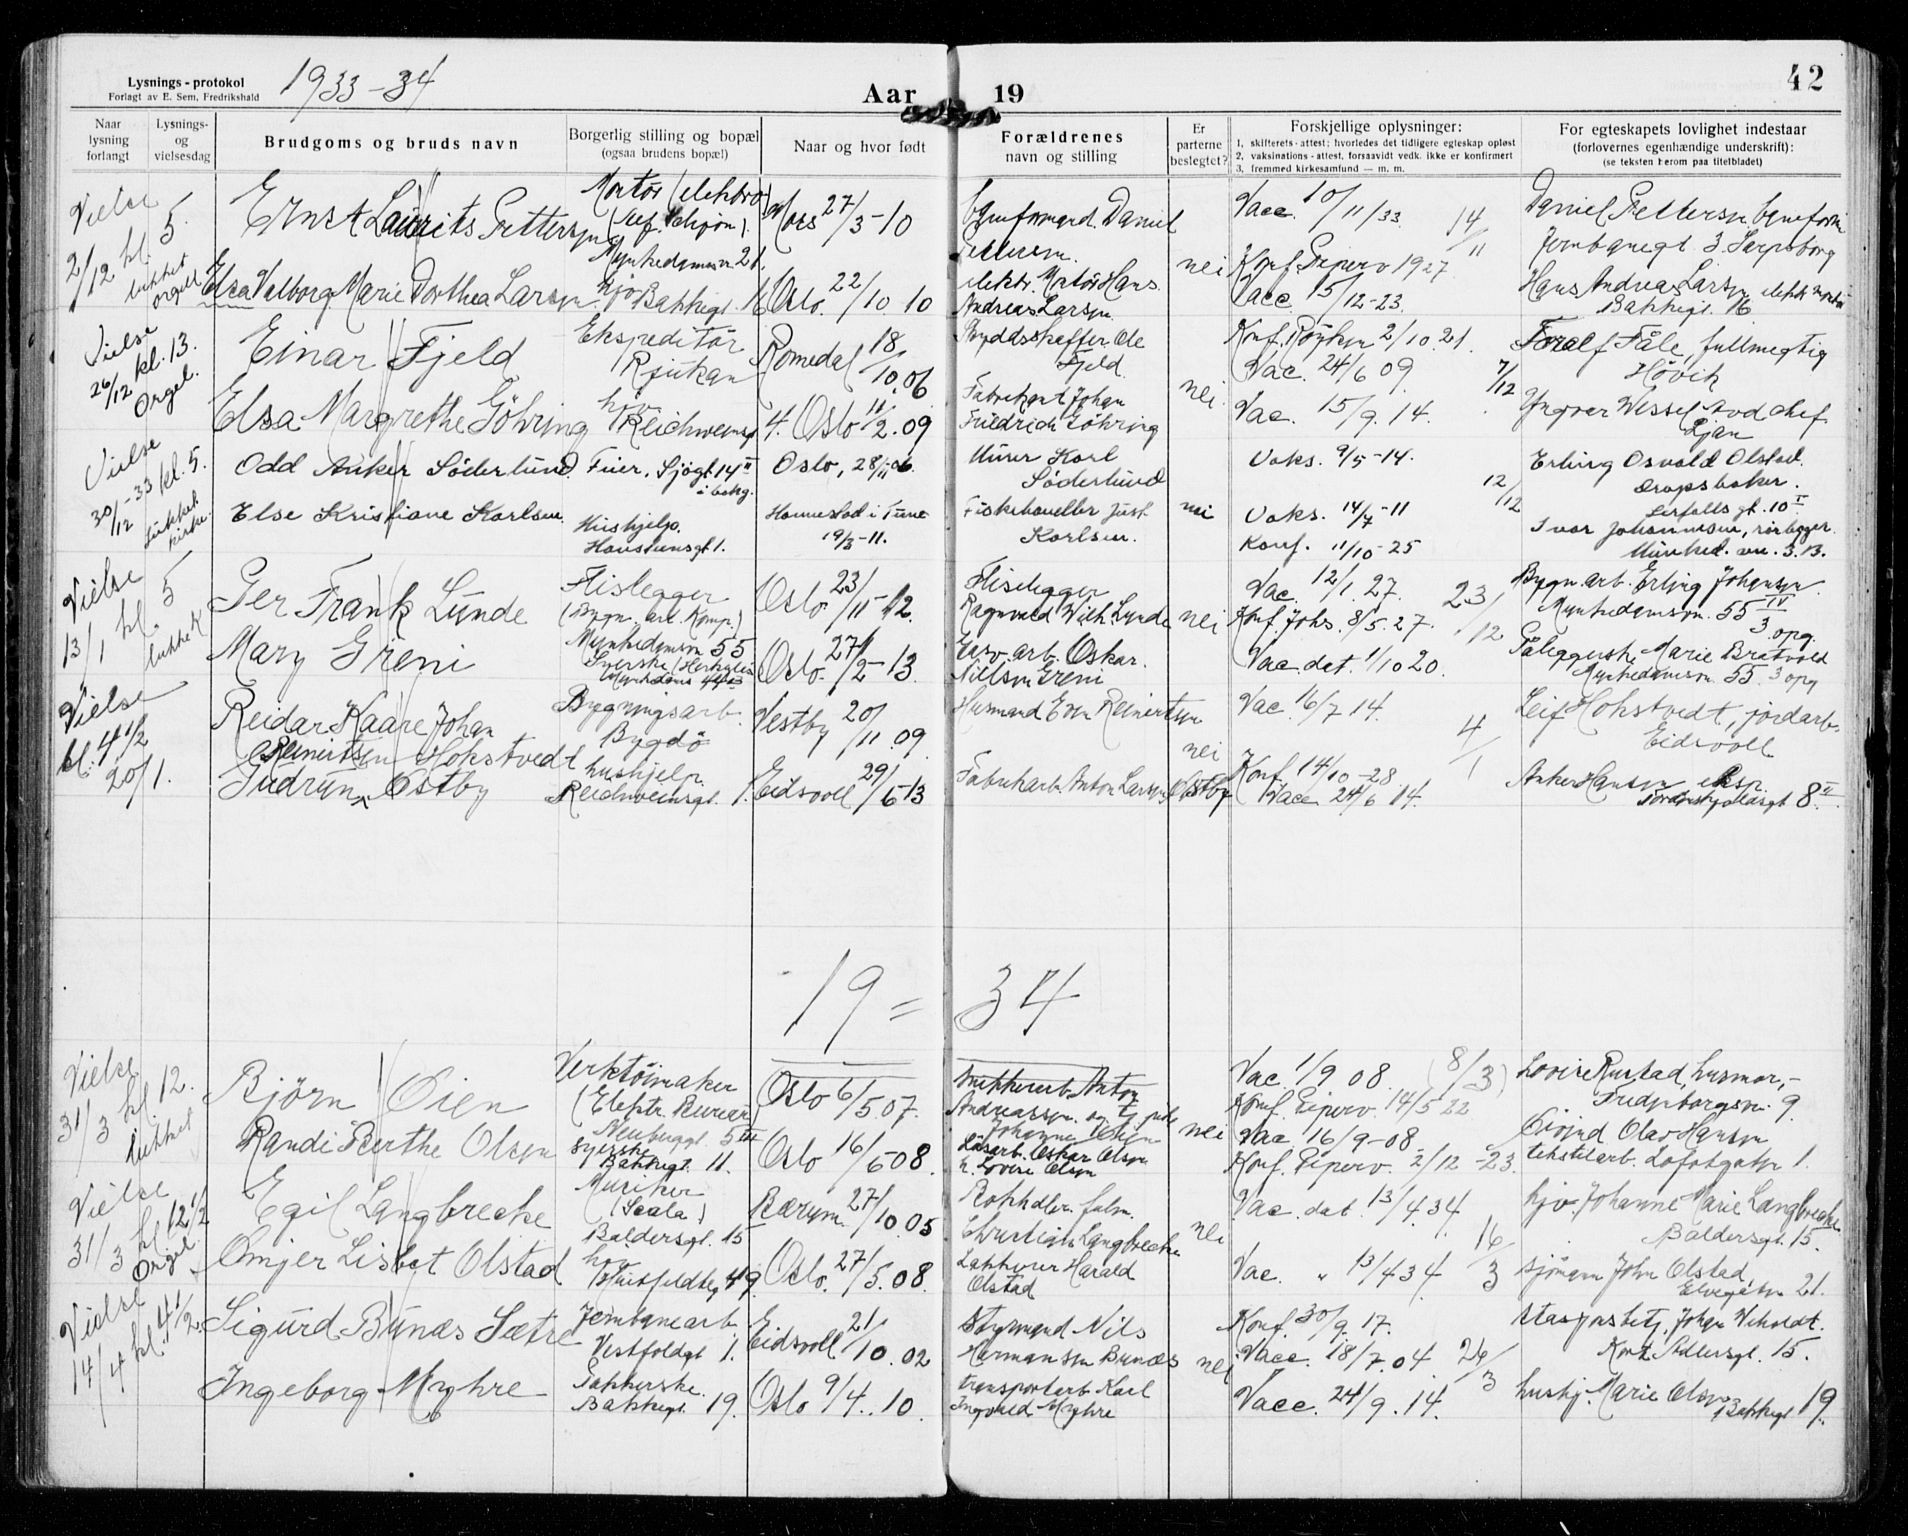 Lysnings-protokol
Forlagt av E. Sem, Fredrikshald
1933-34
Aar 19
42
Naar lysning forlangt
Lysnings- og vielsesdag
Brudgoms og bruds navn
Borgerlig stilling og bopæl
(ogsaa brudens bopæl)
Naar og hvor født
Forældrenes
navn og stilling
Er parterne beslegtet?
Forskjellige oplysninger:
1, skifterets-attest; hvorledes det tidligere egteskap opløst
2, vaksinations-attest, forsaavidt vedk. ikke er konfirmert
3, fremmed kirkesamfund — m. m.
For egteskapets lovlighet indestaar
(forlovernes egenhændige underskrift):
(se teksten herom paa titelbladet)
Vielse 2/12 kl. 5. lukket orgel
Ernst Laurits Pettersen
Montør (elektro)
Moss 27/3-10
Daniel
Vacc. 10/11/33
14/11
Daniel Pettersen
Jernbanegt 3 Sarpsborg
Elsa Valborg Marie Dorthea Larsen
Munkedamsvn 21.
hjv. Bakkegt. 16
Oslo. 22/10 10
elektr. Montør Hans
Andreas Larsen
nei
Konf. Piperv 1927
Vacc. 15/12-23.
Hans Andreas Larsen elektr montør
Bakkegt. 16
Vielse 26/12 kl. 13. Orgel.
Einar Fjeld
Ekspeditør
Rjukan
Romedal 18/10.06
Ole
Fjeld
Konf. Røyken 2/10.21.
Vac. 24/6 09
7/12
Fåle, fullmegtig
Høvik
Elsa Margrethe Göhring
hjv.
Reichweinsgt 4.
Oslo 11/2.09
Fabrikant Johan
Friedrich Göhring
nei
Vac. 15/9.14.
Yngvar Wessel Avd chef
Ljan
Vielse 30/12-33 kl. 5. Lukket kirke.
Odd Anker Søderlund.
Feier. Sjøgt. 14 II
i bakg.
Oslo, 28/11 06
Murer Karl
Søderlund
Vaks. 9/5-14.
12/12
Erling Osvald Olstad.
dropsbaker.
10 I
Else Kristiane Karlsen.
Hushjelp.
Hausteensgt 1.
Hannestad i Tune
19/3-11.
Fiskehandler Just
Karlsen.
nei
Vaks. 14/7-11
Konf. 11/10-25
Ivar Johannesen, rørlegger
Munked. vn. 3.13.
Vielse 13/1 kl. 5 lukket K
Per Frank Lunde
Flislegger
(Bygn. arb. Komp.)
Munkedamsvn 55
Oslo 23/11-12.
Fliselegger
Ragnvald Wilh Lunde
nei
Vac. 12/1.27.
Konf. Johs. 8/5.27.
23/12
Bygn. arb. Erling Johansen.
Munkedamsvn. 55 IV
3 opg.
Mary Greni
Syerske (Herkules)
Oslo. 27/2-13
arb. Oskar.
Nilsen Greni
Vac. dat. 1/10 20.
Marie Bratvold
Munkedamsvn. 55. 3 opg
Vielse kl. 4 1/2 20/1.
Reidar Kaare Johan
Reinertsen Hokstvedt
Bygningsarb.
Bygdö
Vestby 20/11.09
Husmand Even Reinertsen
Vac. 16/7 14.
4/1
Leif Hokstvedt, jordarb.
Eidsvoll
Gudrun Østby
hushjelp
Reichweinsgt. 1.
Eidsvoll 29/6-13
Fabrikarb. Anton Larsen Østby
nei
Konf. 14/10-28
Vacc 24/6 14.
Anker Hansen eksp.
Tordenskjoldsgt 8 II
19 = 34
Vielse 31/3 kl 12. lukket
Bjørn Øien
Verktøimaker
(Elektr. Bureau)
Neubergt. 5 III
Oslo 6/5 07.
Snekkerarb. Anton
Andreassen og
Johanne Øien
Vac. 1/9 08.
(8/3)
Konf. Piperv. 14/5 22
Lovise Rustad, husmor,-
Fredensborgsvn. 9.
Randi Berthe Olsen
Syerske
Bakkegt. 11.
Oslo 16/6 08.
Oskar Olsen
h. Lovise Olsen
nei
Vac. 16/9-08.
Konf. Piperv. 2/12-23.
Eivind Olav Hansen
tekstilarb. Lofotgaten 1.
Vielse 31/3 kl 12 1/2 Orgel.
Egil Langbrecke
Musiker
(Scala)
Baldersgt. 15
Bærum. 27/10.05
Christian Langbrecke
nei
Vac. dat. 13/4 34
16/3
hjv. Johanne Marie Langbrecke
Baldersgt. 15.
Lisbet Olstad
hjv
Oslo. 27/5.08.
Harald
Olstad
Vac. " 13/4 34
sjømann John Olstad,
21.
Vielse 14/4 kl. 4 1/2.
Sigurd Bunæs Sætre
Jernbanearb
Vestfoldgt 1.
Eidsvoll 21/10.02
Styrmand Nils
Hermansen Bunæs
nei
Konf. 30/9.17.
Vacc. 18/7.04
26/3
Stasjonsbetj. Johan
Kort Adlersgt. 15.
Ingeborg Myhre
Pakkerske.
Bakkegt. 19.
Oslo 9/4.10.
transportarb Karl
Ingvald Myhre
Vacc. 24/9.14.
hushj. Marie Olsen
Bakkegt 19.